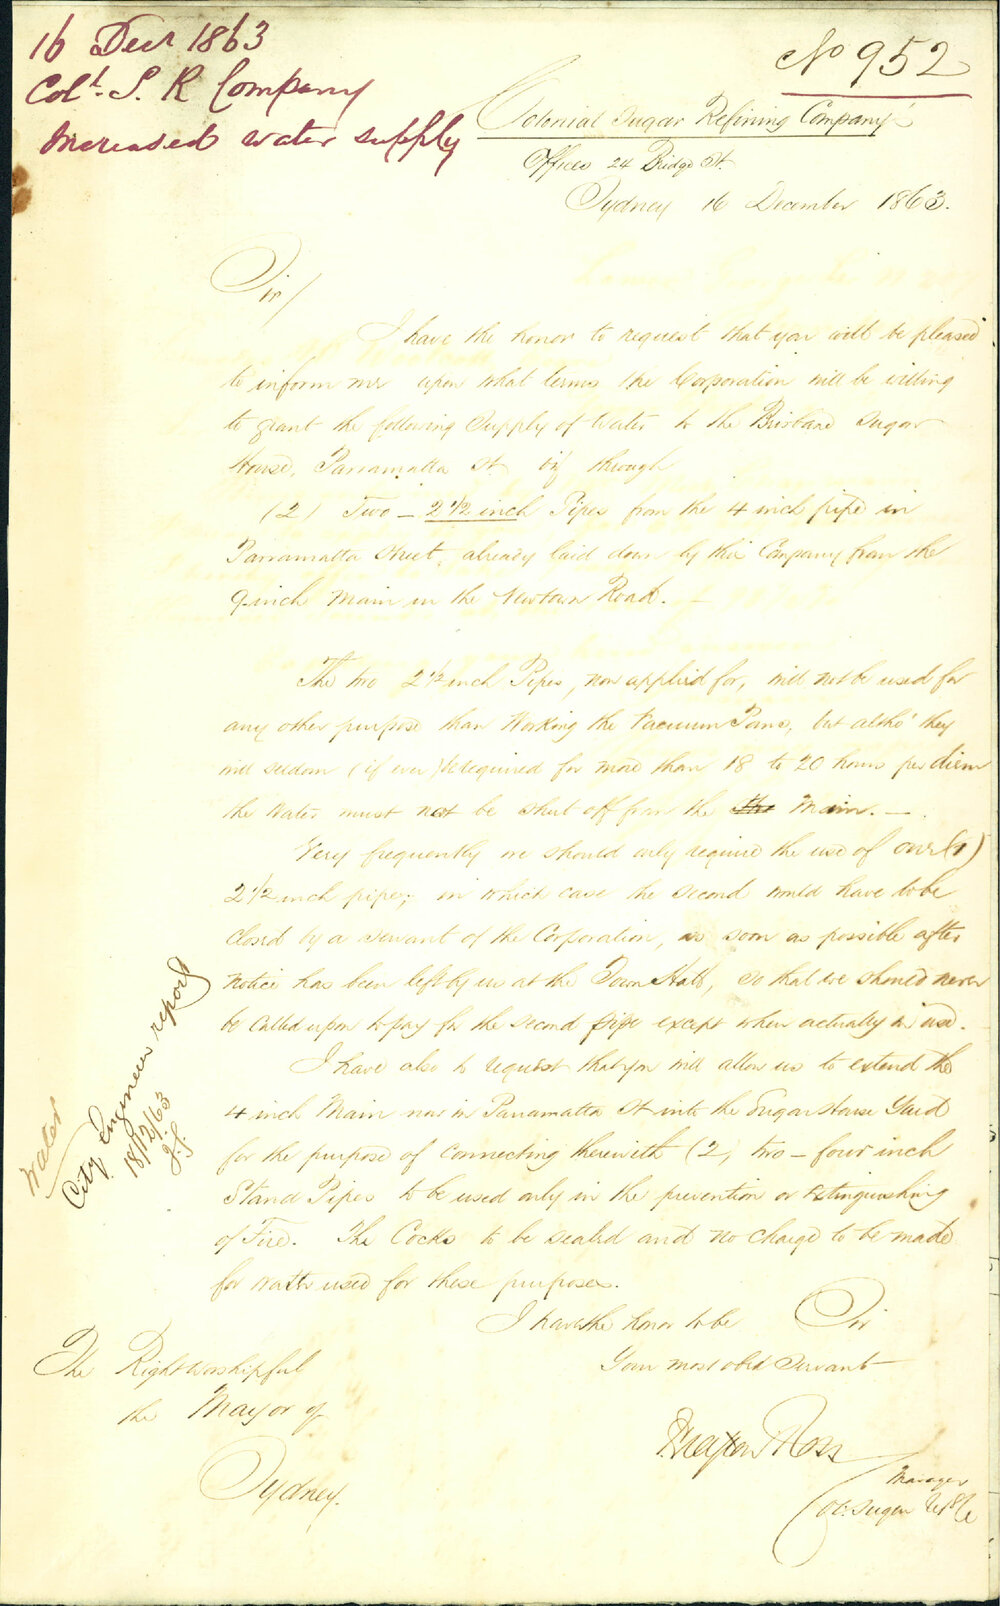 16 Decr 1863
Coll. S. R Company
Increased water supply
No 952
Colonial Sugar Refining Company
Offices 24 Bridge St.
Sydney 16 December 1863.
Sir/
I have the honor to request that you will be pleased
to inform me upon what terms the Corporation will be willing
to grant the following Supply of Water to the Brisbane Sugar
House, Parramatta St. viz through
(2) Two - 2 1/2 inch Pipes from the 4 inch pipe in
Parramatta Street, already laid down by this Company from the
9 inch Main in the Newtown Road. -
The two 2 1/2 inch Pipes, now applied for, will not be used for
any other purpose than Working the Vacuum Pans, but altho' they
will seldom (if ever) be required for more than 18 to 20 hours per diem
the Water must not be shut off from the the Main. -
Very frequently we should only require the use of one (1)
2 1/2 inch pipe; in which case the second would have to be
closed by a servant of the Corporation, as soon as possible after
notice has been left by us at the Town Hall, so that we should never
be called upon to pay for the second pipe except when actually in use.
I have also to request that you will allow us to extend the
4 inch Main now in Parramatta St into the Sugar House Yard
for the purpose of connecting therewith (2) two - four inch
Stand Pipes to be used only in the prevention or extinguishing
of Fire. The Cocks to be sealed and no charge to be made
for water used for these purposes.
I have the honor to be Sir
Your most obed Servant
Ross
Manager
Col: Sugar Ref Co
The Right Worshipful
the Mayor of
Sydney.
Water
City Engineers report
18/12/63
J.S.